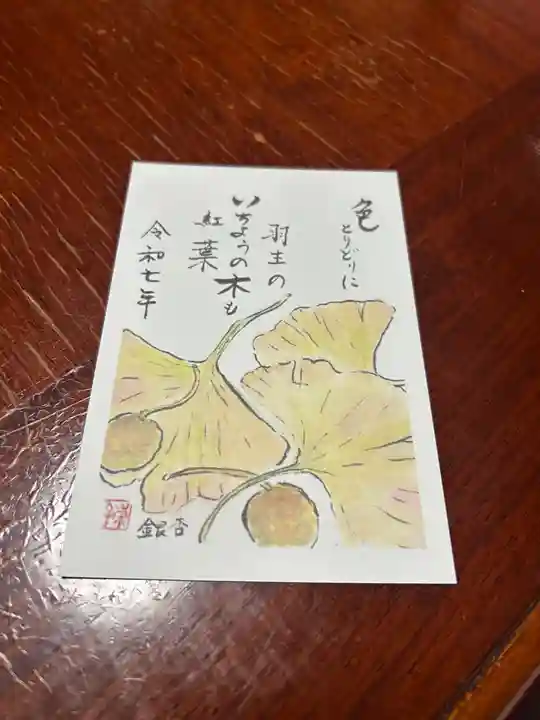 色とりどりに
羽生の
いちょうの木も
紅葉
令和七年
銀杏